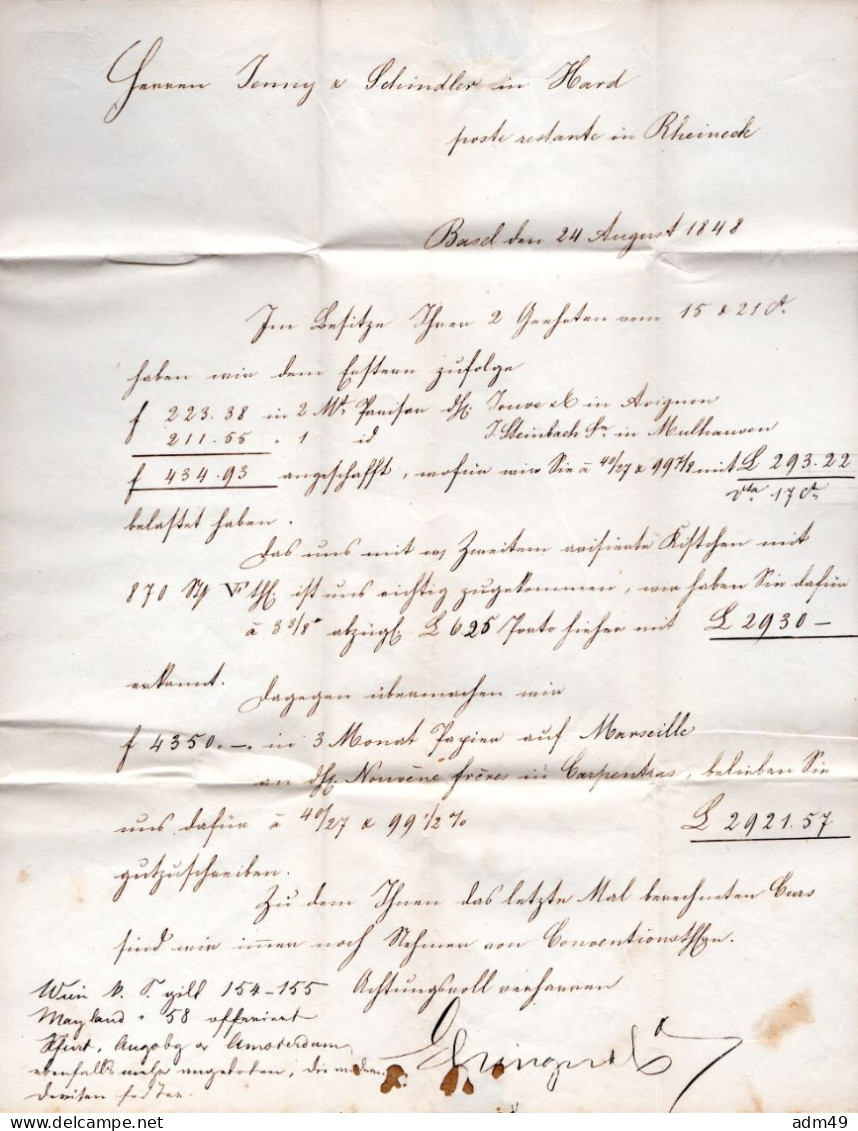 Herren Jenny & Schindler in Hard
poste restante in Rheineck
Basel den 24 August 1848
Im Besitze Ihrer 2 Geehrten vom 15 & 21 ct.
haben wir dem Erstern zufolge
f 223.38 in 2 Mt. Pariser Jouve & C in Avignon
211.55 " 1 id J. Steinbach Sn. in Mulhausen
f 434.93 angeschafft, wofür wir Sie à 40/27 & 99 7/8 mit L 293.22
vta. 17 ct.
belastet haben.
Das uns mit Zweitem avisierte Kistchen mit
870 Stk ist uns richtig zugekommen, wir haben Sie dafür
à 3 3/8 abzügl. L 6.25 Porto hieher mit L 2930 —
erkannt.
Dagegen übermachen wir
f 4350.—. in 3 Monat Papier auf Marseille
an frères in Carpentras, belieben Sie
uns dafür à 40/27 & 99 1/2 % L 2921.57
gutzuschreiben.
Zu dem Ihnen das letzte Mal berechneten Curs
sind wir immer noch Nehmer von
Achtungsvoll verharren
Wien k. S. gilt 154-155
Mayland " 58 offeriert
Ffurt, Augsbg & Amsterdam
ebenfalls mehr angeboten, die andern
Devisen fester.
adm49